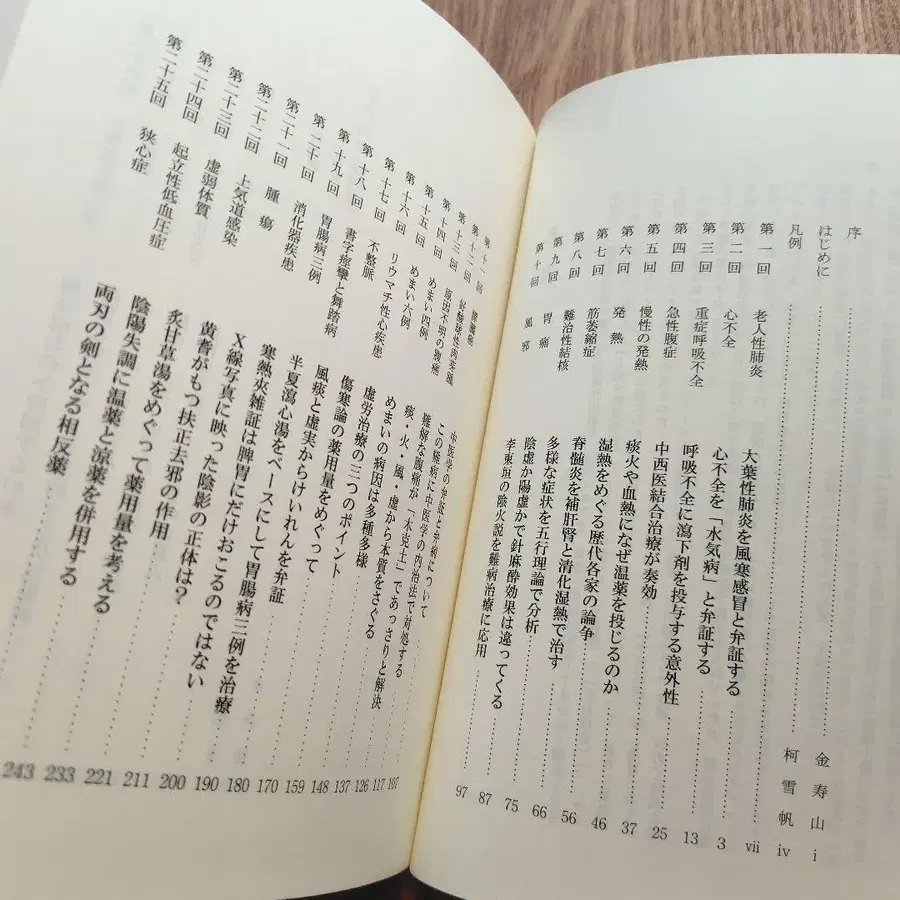 序 金寿山 i
はじめに 柯雪帆 iv
凡例 vii
第一回 老人性肺炎 大葉性肺炎を風寒感冒と弁証する 3
第二回 心不全 心不全を「水気病」と弁証する 13
第三回 重症呼吸不全 呼吸不全に瀉下剤を投与する意外性 25
第四回 急性腹症 中西医結合治療が奏効 37
第五回 慢性の発熱 痰火や血熱になぜ温薬を投じるのか 46
第六回 発熱 湿熱をめぐる歴代各家の論争 56
第七回 筋萎縮症 脊髄炎を補肝腎と清化湿熱で治す 66
第八回 難治性結核 多様な症状を五行理論で分析 75
第九回 胃痛 陰虚か陽虚かで針麻酔効果は違ってくる 87
第十回 風邪 李東垣の陰火説を難病治療に応用 97
第十一回 中医学の弁証と弁病について 107
第十二回 好酸球性肉芽腫 この難病に中医学の内治法で対処する 117
第十三回 原因不明の腹痛 難解な腹痛が「木克土」であっさりと解決 126
第十四回 めまい四例 痰・火・風・虚から本質をさぐる 137
第十五回 めまい六例 めまいの病因は多種多様 148
第十六回 リウマチ性心疾患 虚労治療の三つのポイント 159
第十七回 不整脈 傷寒論の薬用量をめぐって 170
第十八回 書字痙攣と舞踏病 風痰と虚実からけいれんを弁証 180
第十九回 胃腸病三例 半夏瀉心湯をベースにして胃腸病三例を治療 190
第二十回 消化器疾患 寒熱夾雑証は脾胃にだけおこるのではない 200
第二十一回 腫瘍 X線写真に映った陰影の正体は? 211
第二十二回 上気道感染 黄耆がもつ扶正去邪の作用 221
第二十三回 虚弱体質 炙甘草湯をめぐって薬用量を考える 233
第二十四回 起立性低血圧症 陰陽失調に温薬と涼薬を併用する 243
第二十五回 狭心症 両刃の剣となる相反薬